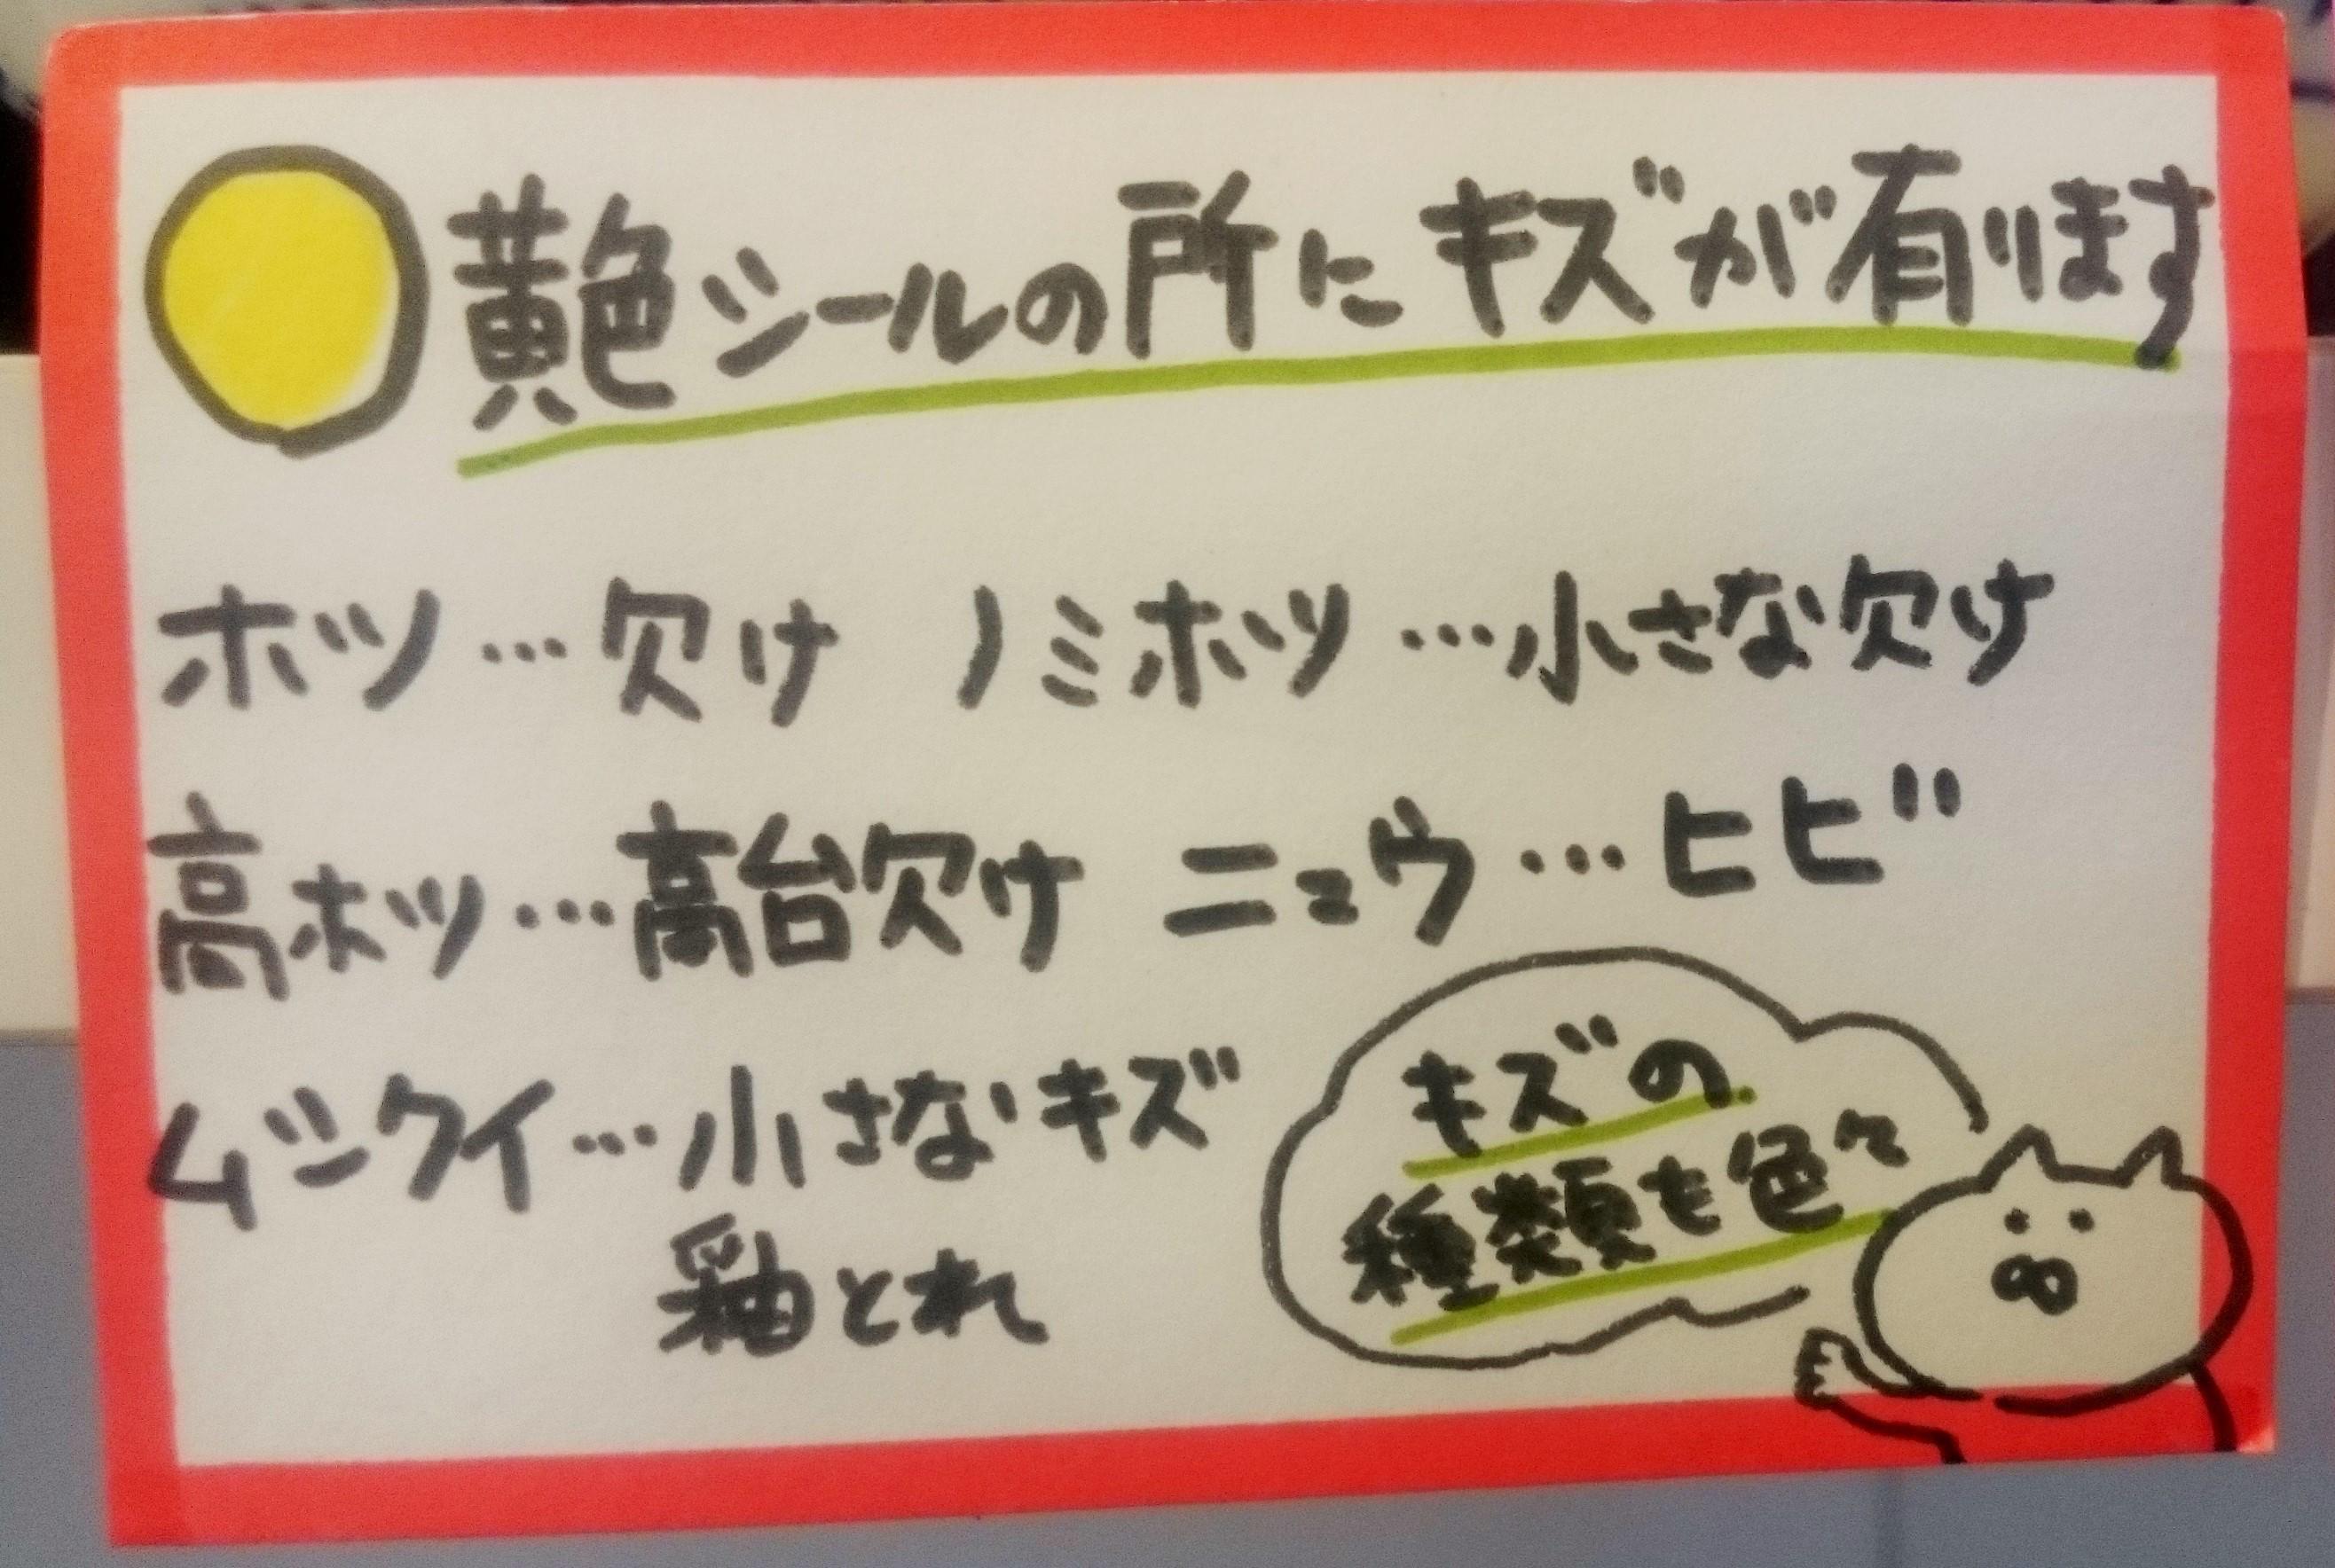 黄色シールの所にキズが有ります
ホツ…欠け ノミホツ…小さな欠け
高ホツ…高台欠け ニュウ…ヒビ
ムシクイ…小さなキズ
釉とれ
キズの
種類も色々